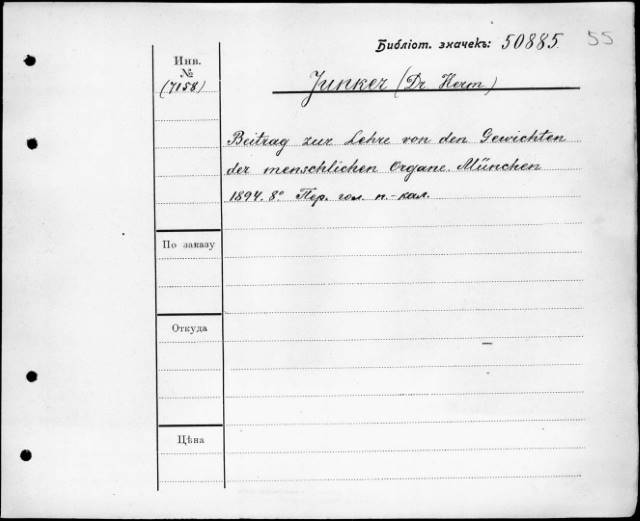 Библіот. значекъ: 50885. 55
Инв.
№
(7158)
Junker (Dr Herm.)
Beitrag zur Lehre von den Gewichten
der menschlichen Organe. München
1894. 8° Пер. гол. п.-кал.
По заказу
Откуда
Цѣна